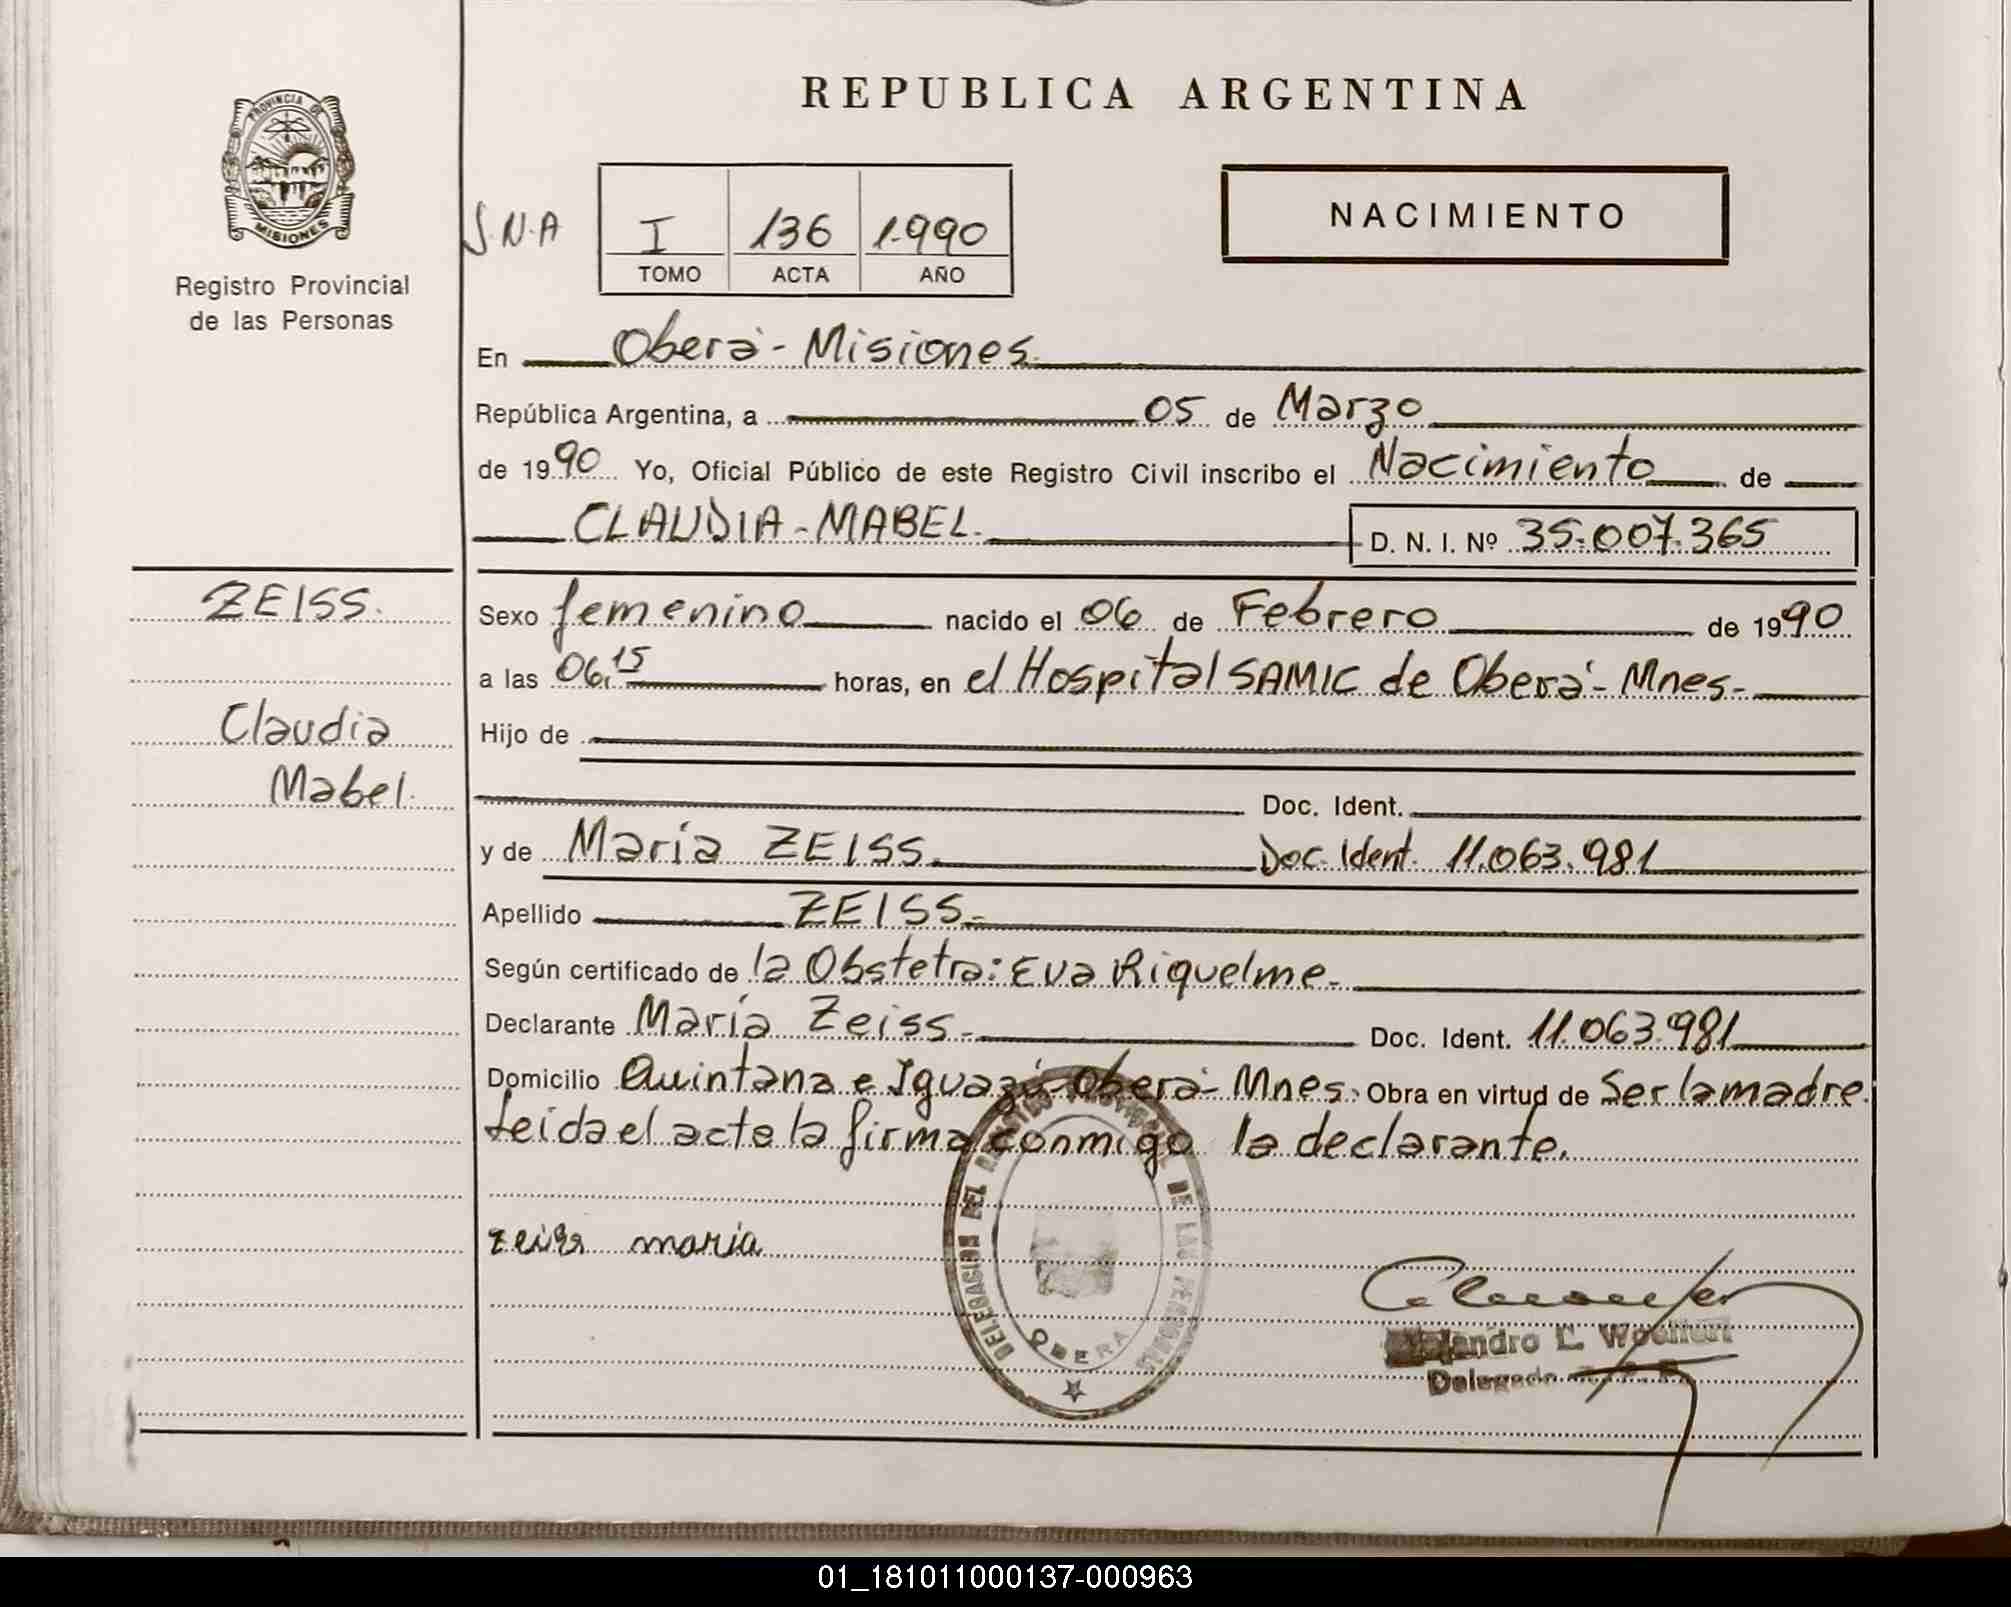 REPUBLICA ARGENTINA
PROVINCIA DE
MISIONES
Registro Provincial
de las Personas
S.N.A
I 136 1.990
TOMO ACTA AÑO
NACIMIENTO
En Oberá - Misiones.
República Argentina, a 05 de Marzo
de 1990 Yo, Oficial Público de este Registro Civil inscribo el Nacimiento de
CLAUDIA - MABEL. D. N. I. Nº 35.007.365
ZEISS.
Claudia
Mabel.
Sexo femenino nacido el 06 de Febrero de 1990
a las 06,15 horas, en el Hospital SAMIC de Oberá - Mnes -
Hijo de
Doc. Ident.
y de María ZEISS. Doc. Ident. 11.063.981
Apellido ZEISS.-
Según certificado de la Obstetra: Eva Riquelme.
Declarante María Zeiss.- Doc. Ident. 11.063.981
Domicilio Quintana e Iguazú - Oberá - Mnes. Obra en virtud de Ser la madre.
Leida el acta la firma conmigo la declarante.
zeiss maria
DELEGACION DEL REGISTRO PROVINCIAL DE LAS PERSONAS
OBERA
Alejandro L.
Delegado
01_181011000137-000963